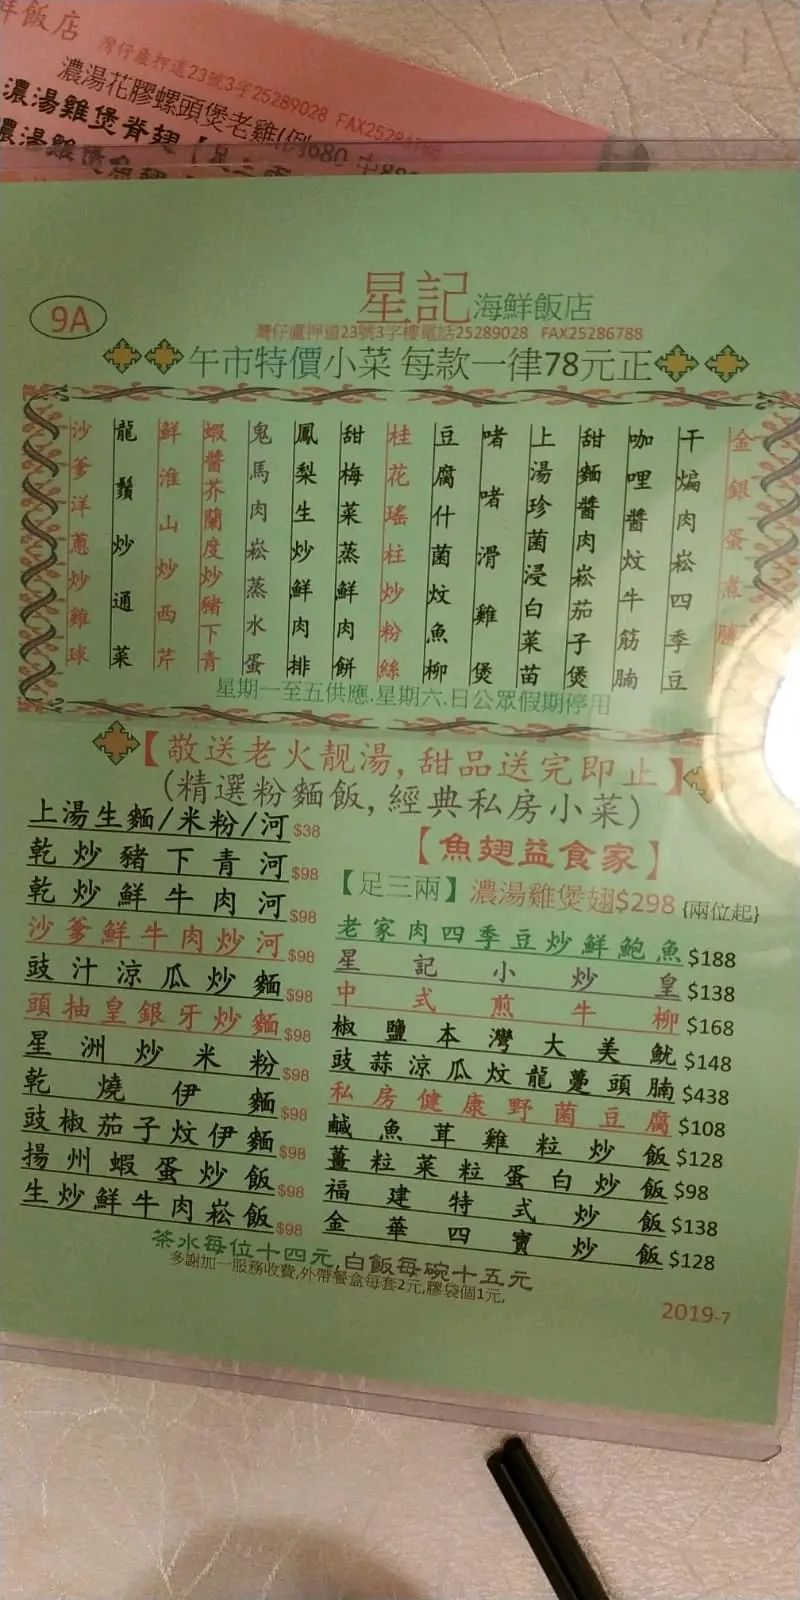 鮮飯店
灣仔盧押道23號3字25289028 FAX25286788
濃湯花膠螺頭煲老雞(例680
濃湯雞煲脊翅
9A
星記海鮮飯店
灣仔盧押道23號3字樓電話25289028 FAX25286788
午市特價小菜 每款一律78元正
金銀蛋煮
干煸肉崧四季豆
咖哩醬炆牛筋腩
甜麵醬肉崧茄子煲
上湯珍菌浸白菜苗
啫啫滑雞煲
豆腐什菌炆魚柳
桂花瑤柱炒粉絲
甜梅菜蒸鮮肉餅
鳳梨生炒鮮肉排
鬼馬肉崧蒸水蛋
蝦醬芥蘭度炒豬下青
鮮淮山炒西芹
龍鬚炒通菜
沙爹洋蔥炒雞球
星期一至五供應.星期六.日公眾假期停用
【敬送老火靚湯,甜品送完即止】
(精選粉麵飯,經典私房小菜)
上湯生麵/米粉/河 $38
乾炒豬下青河 $98
乾炒鮮牛肉河 $98
沙爹鮮牛肉炒河 $98
豉汁涼瓜炒麵 $98
頭抽皇銀牙炒麵 $98
星洲炒米粉 $98
乾燒伊麵 $98
豉椒茄子炆伊麵 $98
揚州蝦蛋炒飯 $98
生炒鮮牛肉崧飯 $98
【魚翅益食家】
【足三兩】濃湯雞煲翅$298 {兩位起}
老家肉四季豆炒鮮鮑魚 $188
星記小炒皇 $138
中式煎牛柳 $168
椒鹽本灣大美魷 $148
豉蒜涼瓜炆龍躉頭腩 $438
私房健康野菌豆腐 $108
鹹魚茸雞粒炒飯 $128
薑粒菜粒蛋白炒飯 $98
福建特式炒飯 $138
金華四寶炒飯 $128
茶水每位十四元,白飯每碗十五元
多謝加一服務收費,外帶餐盒每套2元,膠袋個1元,
2019-7